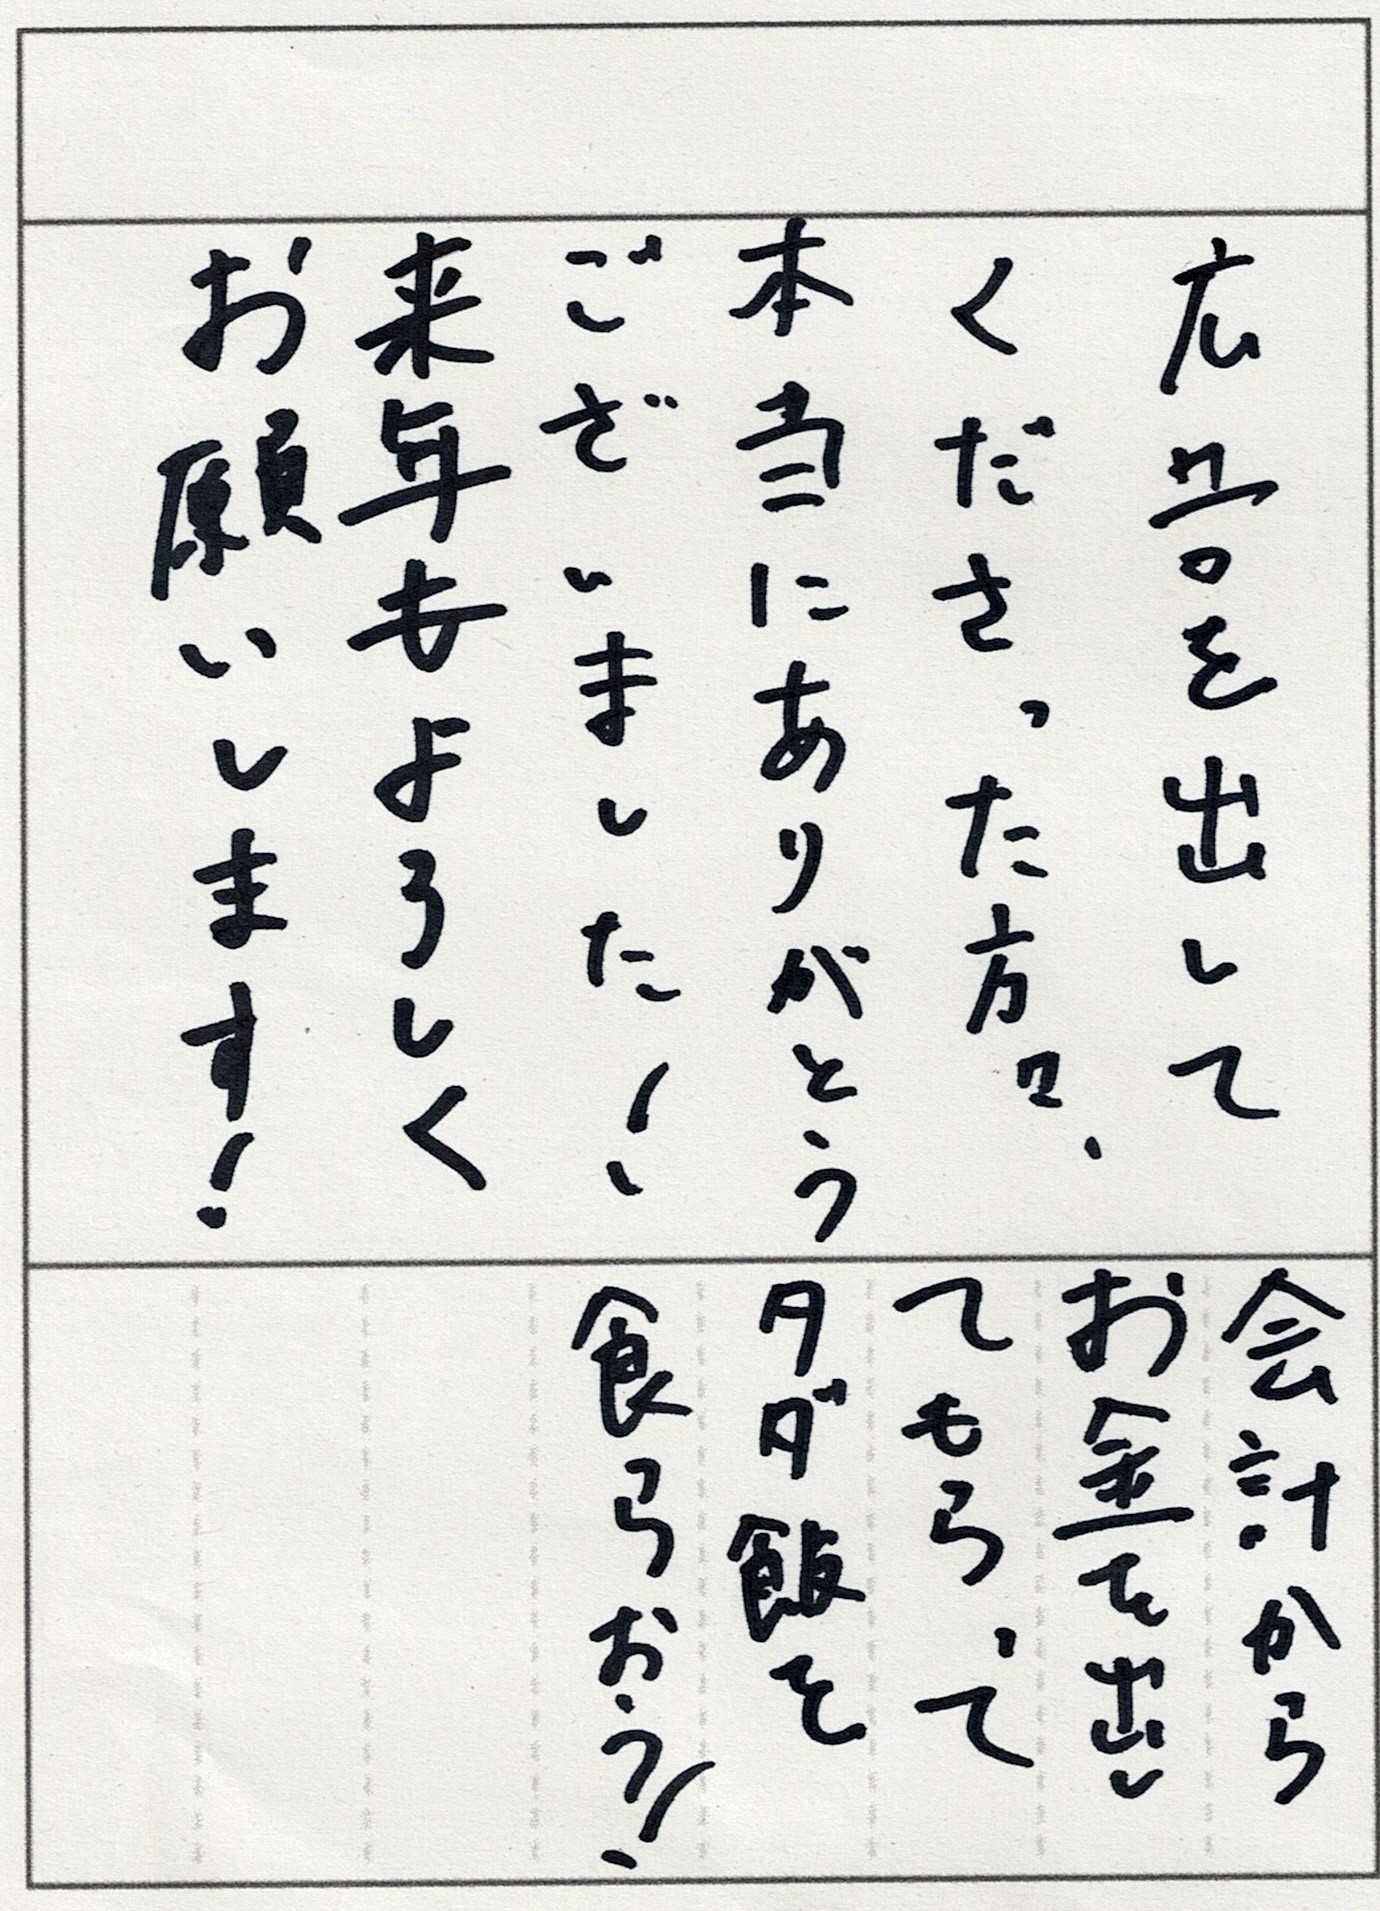 広告を出して
くださった方々、
本当にありがとう
ございました！
来年もよろしく
お願いします！
会計から
お金を出し
てもらって
タダ飯を
食らおう！